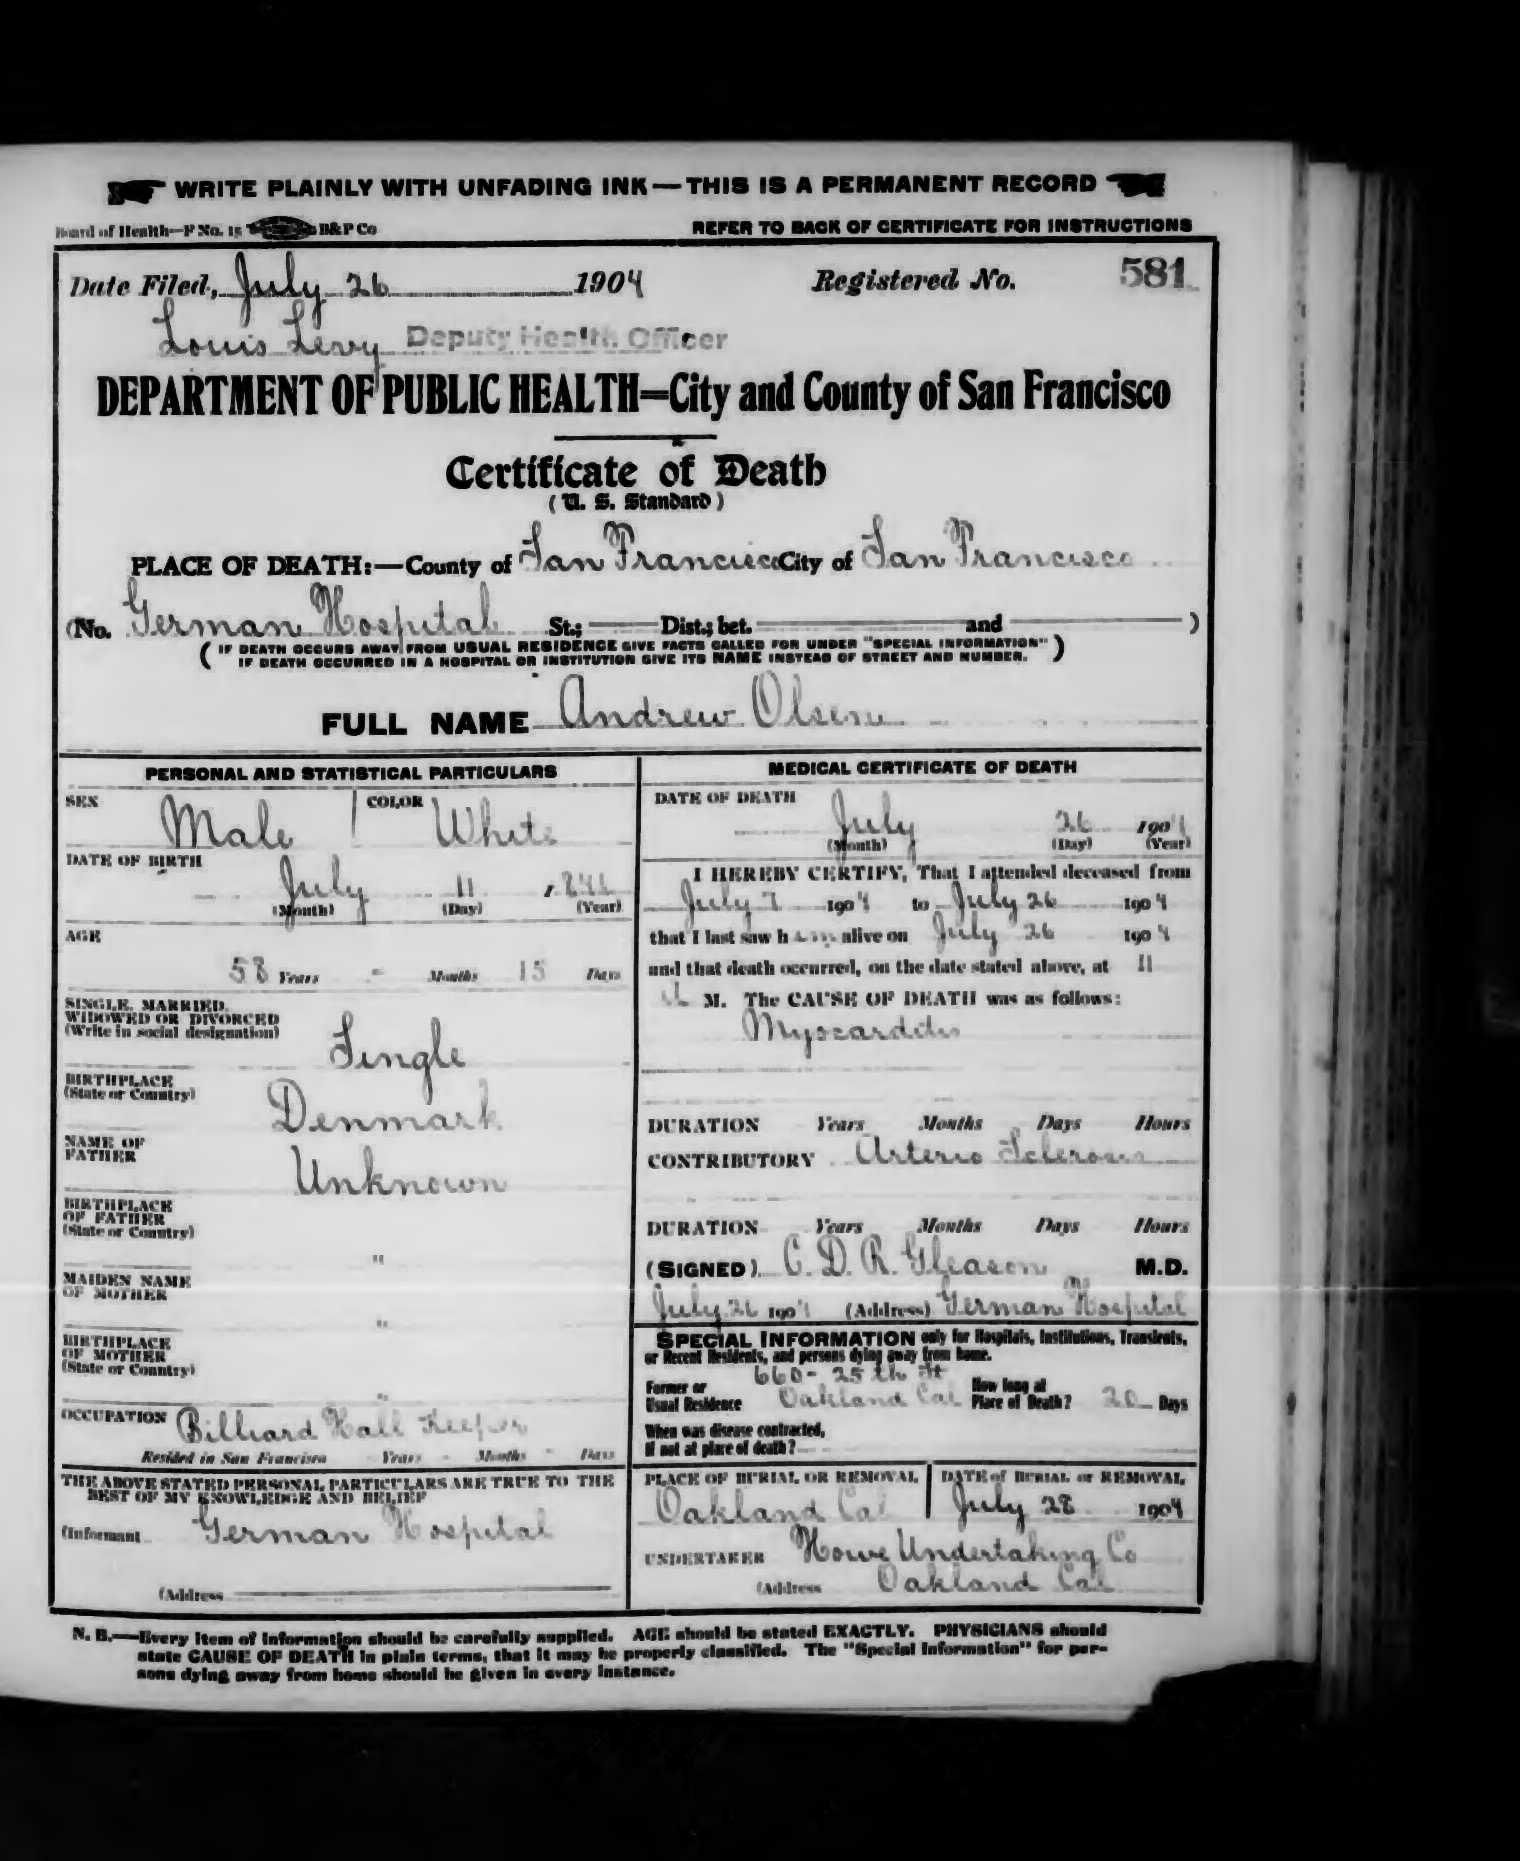 WRITE PLAINLY WITH UNFADING INK—THIS IS A PERMANENT RECORD
Board of Health—F No. 15 B&P Co
REFER TO BACK OF CERTIFICATE FOR INSTRUCTIONS
Date Filed, July 26 1904 Registered No. 581
Louis Levy Deputy Health Officer
DEPARTMENT OF PUBLIC HEALTH=City and County of San Francisco
Certificate of Death
(U. S. Standard)
PLACE OF DEATH:—County of San Francisco City of San Francisco
(No. German Hospital St.; Dist.; bet. and )
(IF DEATH OCCURS AWAY FROM USUAL RESIDENCE GIVE FACTS CALLED FOR UNDER "SPECIAL INFORMATION"
IF DEATH OCCURRED IN A HOSPITAL OR INSTITUTION GIVE ITS NAME INSTEAD OF STREET AND NUMBER.)
FULL NAME Andrew Olsen
PERSONAL AND STATISTICAL PARTICULARS
SEX Male COLOR White
DATE OF BIRTH
July 11
(Month) (Day) (Year)
AGE
58 Years - Months 15 Days
SINGLE, MARRIED,
WIDOWED OR DIVORCED
(Write in social designation)
Single
BIRTHPLACE
(State or Country)
Denmark
NAME OF
FATHER
Unknown
BIRTHPLACE
OF FATHER
(State or Country)
"
MAIDEN NAME
OF MOTHER
"
BIRTHPLACE
OF MOTHER
(State or Country)
"
OCCUPATION Billiard Hall Keeper
Resided in San Francisco - Years - Months - Days
THE ABOVE STATED PERSONAL PARTICULARS ARE TRUE TO THE
BEST OF MY KNOWLEDGE AND BELIEF
(Informant German Hospital
(Address
MEDICAL CERTIFICATE OF DEATH
DATE OF DEATH
July 26 1904
(Month) (Day) (Year)
I HEREBY CERTIFY, That I attended deceased from
July 7 1904 to July 26 1904
that I last saw him alive on July 26 1904
and that death occurred, on the date stated above, at 11
M. The CAUSE OF DEATH was as follows:
Myocarditis
DURATION Years Months Days Hours
CONTRIBUTORY Arterio Sclerosis
DURATION Years Months Days Hours
(SIGNED) C. D. R. Gleason M.D.
July 26 1904 (Address) German Hospital
SPECIAL INFORMATION only for Hospitals, Institutions, Transients,
or Recent Residents, and persons dying away from home.
660 - 25th St
Former or
Usual Residence Oakland Cal How long at
Place of Death? 20 Days
When was disease contracted,
If not at place of death?
PLACE OF BURIAL OR REMOVAL
Oakland Cal
DATE of BURIAL or REMOVAL
July 28 1904
UNDERTAKER Howe Undertaking Co
(Address Oakland Cal
N. B.—Every item of information should be carefully supplied. AGE should be stated EXACTLY. PHYSICIANS should
state CAUSE OF DEATH in plain terms, that it may be properly classified. The "Special Information" for per-
sons dying away from home should be given in every instance.